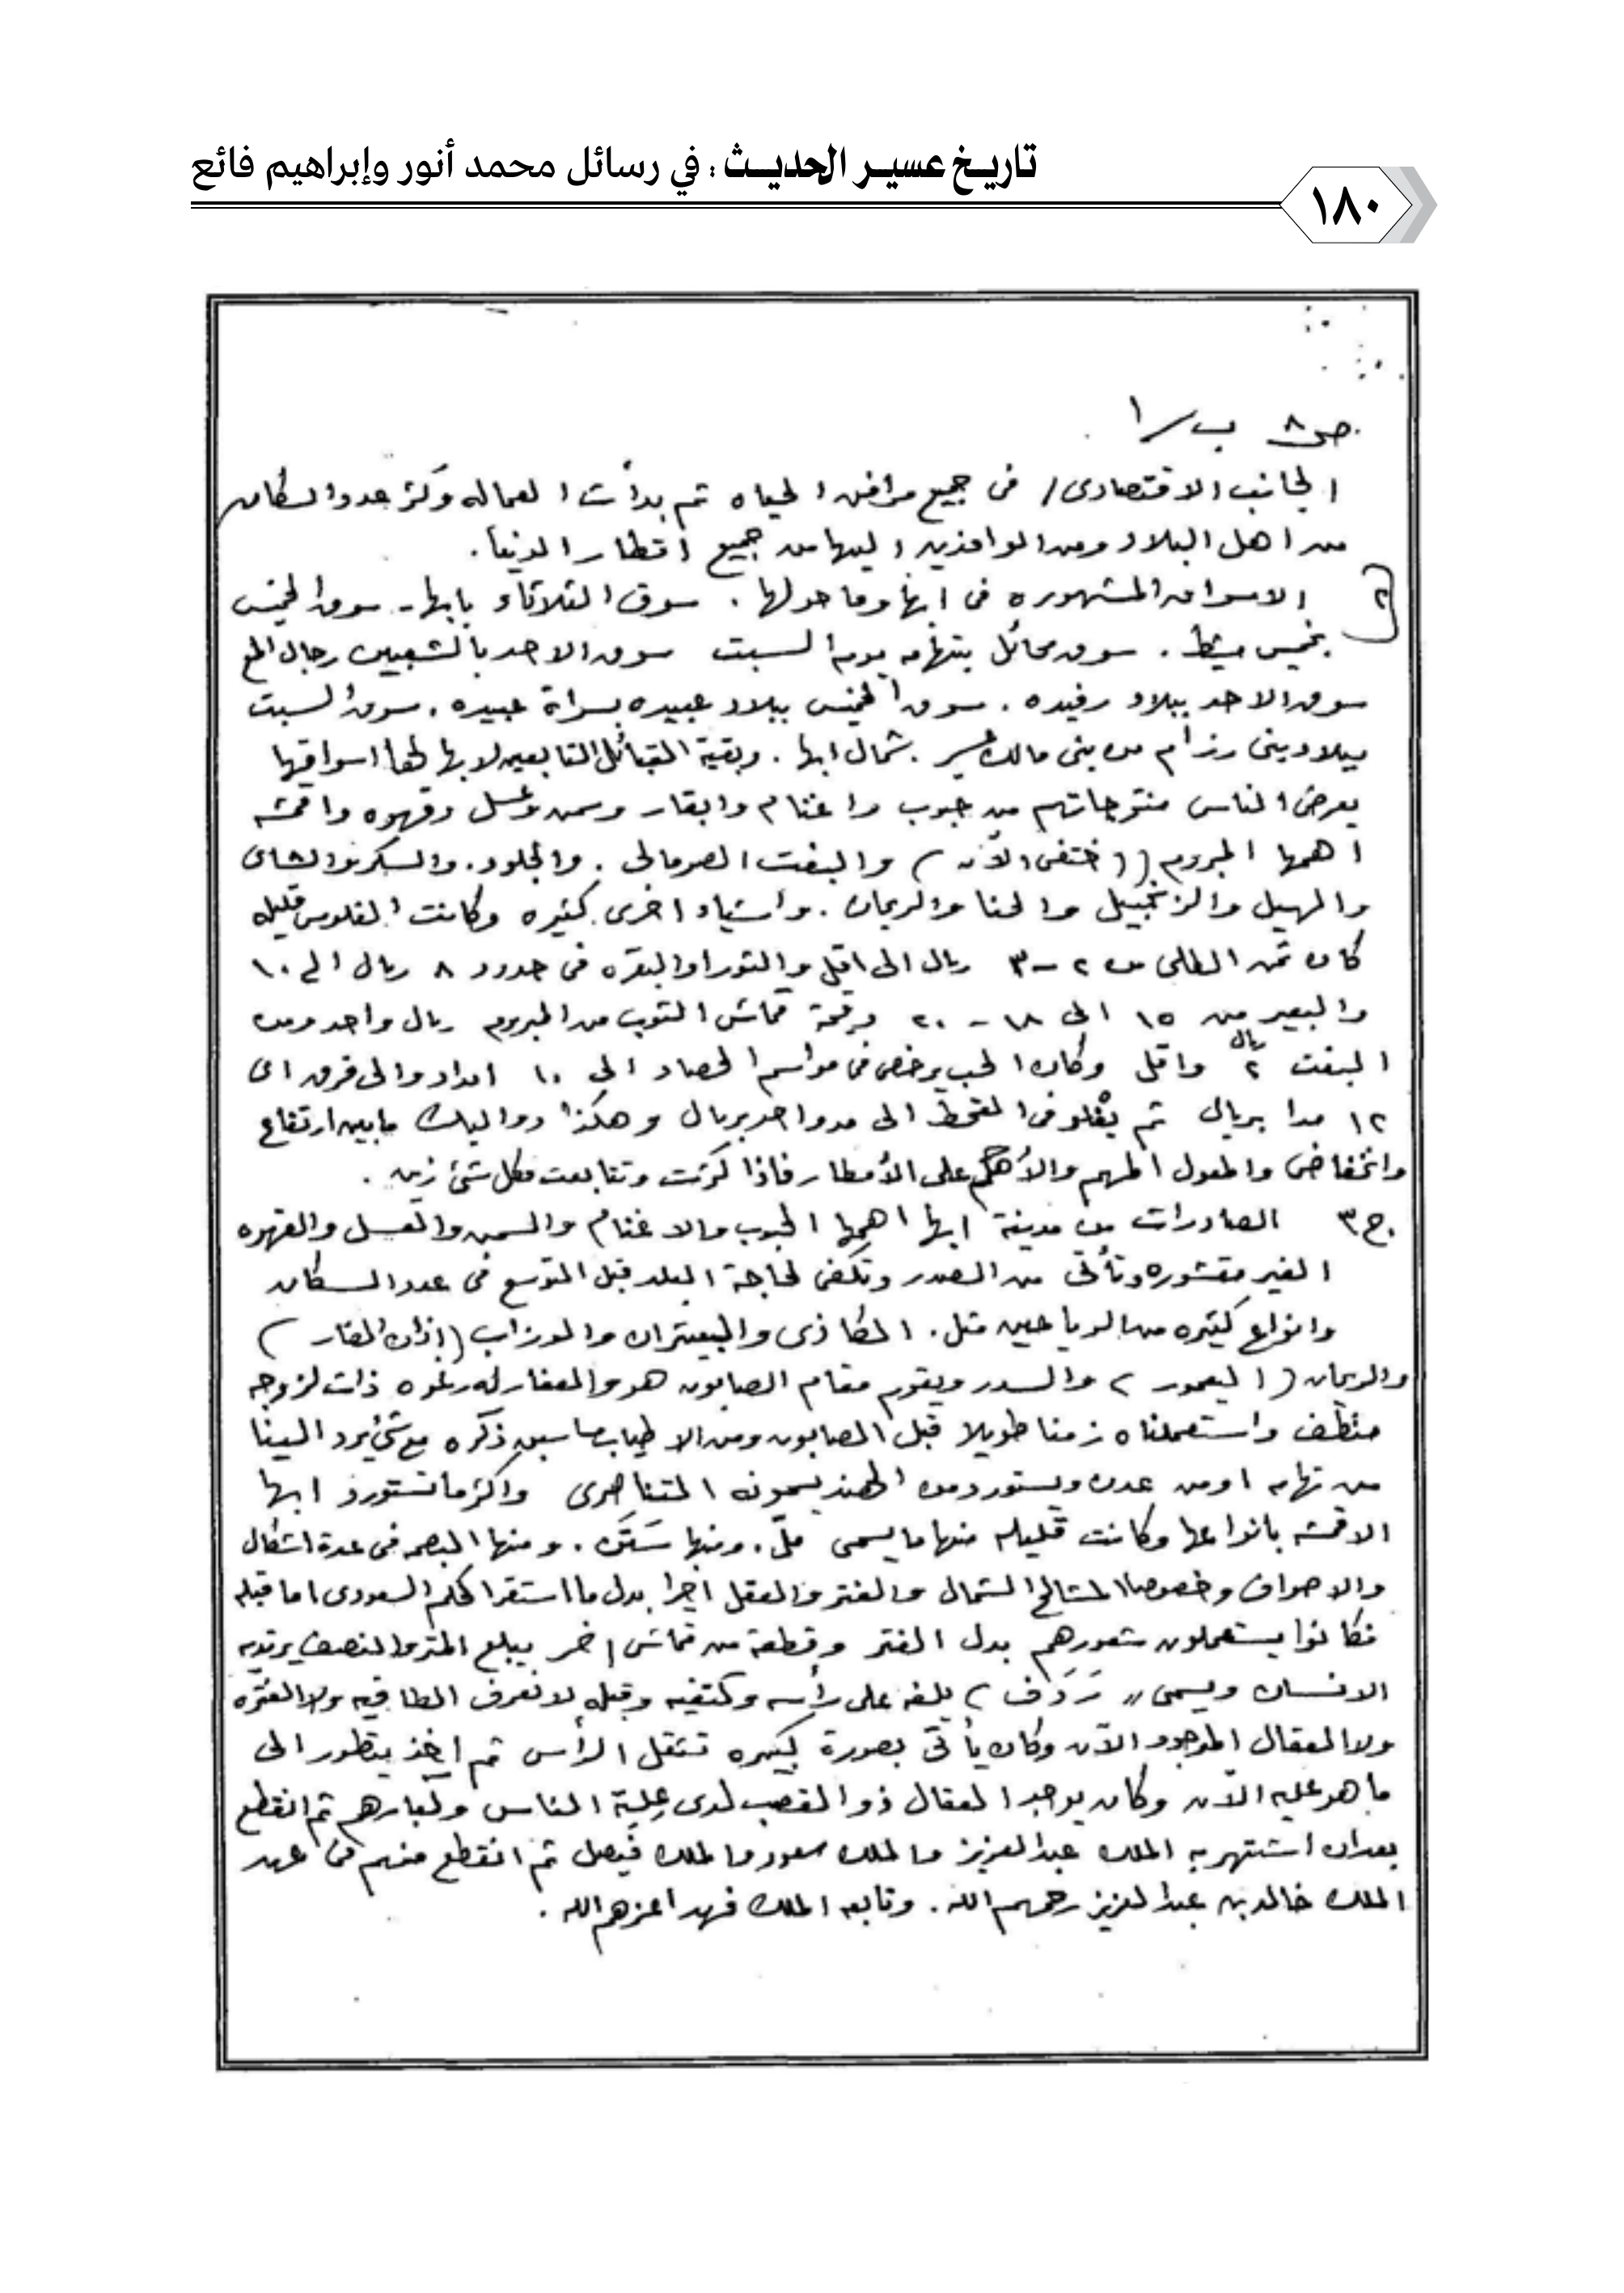 تاريخ عسير الحديث : في رسائل محمد أنور وإبراهيم فائع
١٨٠
ص٨ ب/١
الجانب الاقتصادى/ فى جميع مرافق الحياه ثم بدأت العماله وكثر عدد السكان
من اهل البلاد ومن الوافدين اليها من جميع اقطار الدنيا.
الاسواق المشهوره فى ابها وما حولها . سوق الثلاثاء بابها - سوق الخميس
بخميس مشيط . سوق محائل بتهامه يوم السبت سوق الاحد بالشعبين رجال المع
سوق الاحد ببلاد رفيده . سوق الخميس ببلاد عبيده بسراة عبيده . سوق السبت
ببلاد بنى رزام من بنى مالك عسير . شمال ابها . وبقية القبائل التابعين لابها لها اسواقها
يعرض الناس منتوجاتهم من حبوب واغنام وابقار وسمن وعسل وقهوه واقمشه
اهمها المبروم ( اختفى الآن ) والبفت الصومالى . والجلود . والسكر والشاى
والهيل والزنجبيل والحنا والريحان . واشياء اخرى كثيره وكانت الفلوس قليله
كان ثمن الطلى من ٢ - ٣ ريال الى اقل والثور او البقره فى حدود ٨ ريال الى ١٠
والبعير من ١٥ الى ١٨ - ٢٠ وقيمة قماش الثوب من المبروم ريال واحد ومن
البفت ٢ ريال واقل وكان الحب يرخص فى مواسم الحصاد الى ١٠ امداد والى فرق اى
١٢ مدا بريال ثم يغلو فى القحط الى مد واحد بريال وهكذا دواليك ما بين ارتفاع
وانخفاض والمعول المهم والأهم على الأمطار فاذا كثرت وتتابعت فكل شئ زين .
ج٣ الصادرات من مدينة ابها اهمها الحبوب والاغنام والسمن والعسل والقهوه
الغير مقشوره وتأتى من المصدر وتكفى لحاجة البلد قبل التوسع فى عدد السكان
وانواع كثيره من الرياحين مثل . الكاذى والبعيثران والوزاب (اذان الفار )
والريحان ( اليعمور ) والسدر ويقوم مقام الصابون هو والمعفار له رغوه ذات لزوجه
منظف واستعملناه زمنا طويلا قبل الصابون ومن الاطياب ما سبق ذكره مع شئ يرد الينا
من تهامه او من عدن ويستورد من الهند يسمونه واكثر ما تستورد ابها
الاقمشه بانواعها وكانت قليله منها ما يسمى ملّ . ومنها . ومنها البصمه فى عدة اشكال
والاصواف وخصوصا المشالح الشمال والغتر والعقل اخيرا بدل ما استقر الحكم السعودى اما قبله
فكانوا يستعملون شعورهم بدل الغتر وقطعة من قماش اخر يبلغ المتر والنصف يرتديه
الانسان ويسمى " رَدَف ) يلفه على رأسه وكتفيه وقبله لا نعرف الطاقيه ولا الغتره
ولا العقال الموجود الآن وكان يأتى بصورة كبيره تثقل الرأس ثم اخذ يتطور الى
ما هو عليه الآن وكان يوجد العقال ذو القصب لدى عِلية الناس وكبارهم ثم انقطع
بعد ان اشتهر به الملك عبدالعزيز والملك سعود والملك فيصل ثم انقطع منهم فى عهد
الملك خالد بن عبدالعزيز رحمهم الله . وتابعه الملك فهد اعزهم الله .